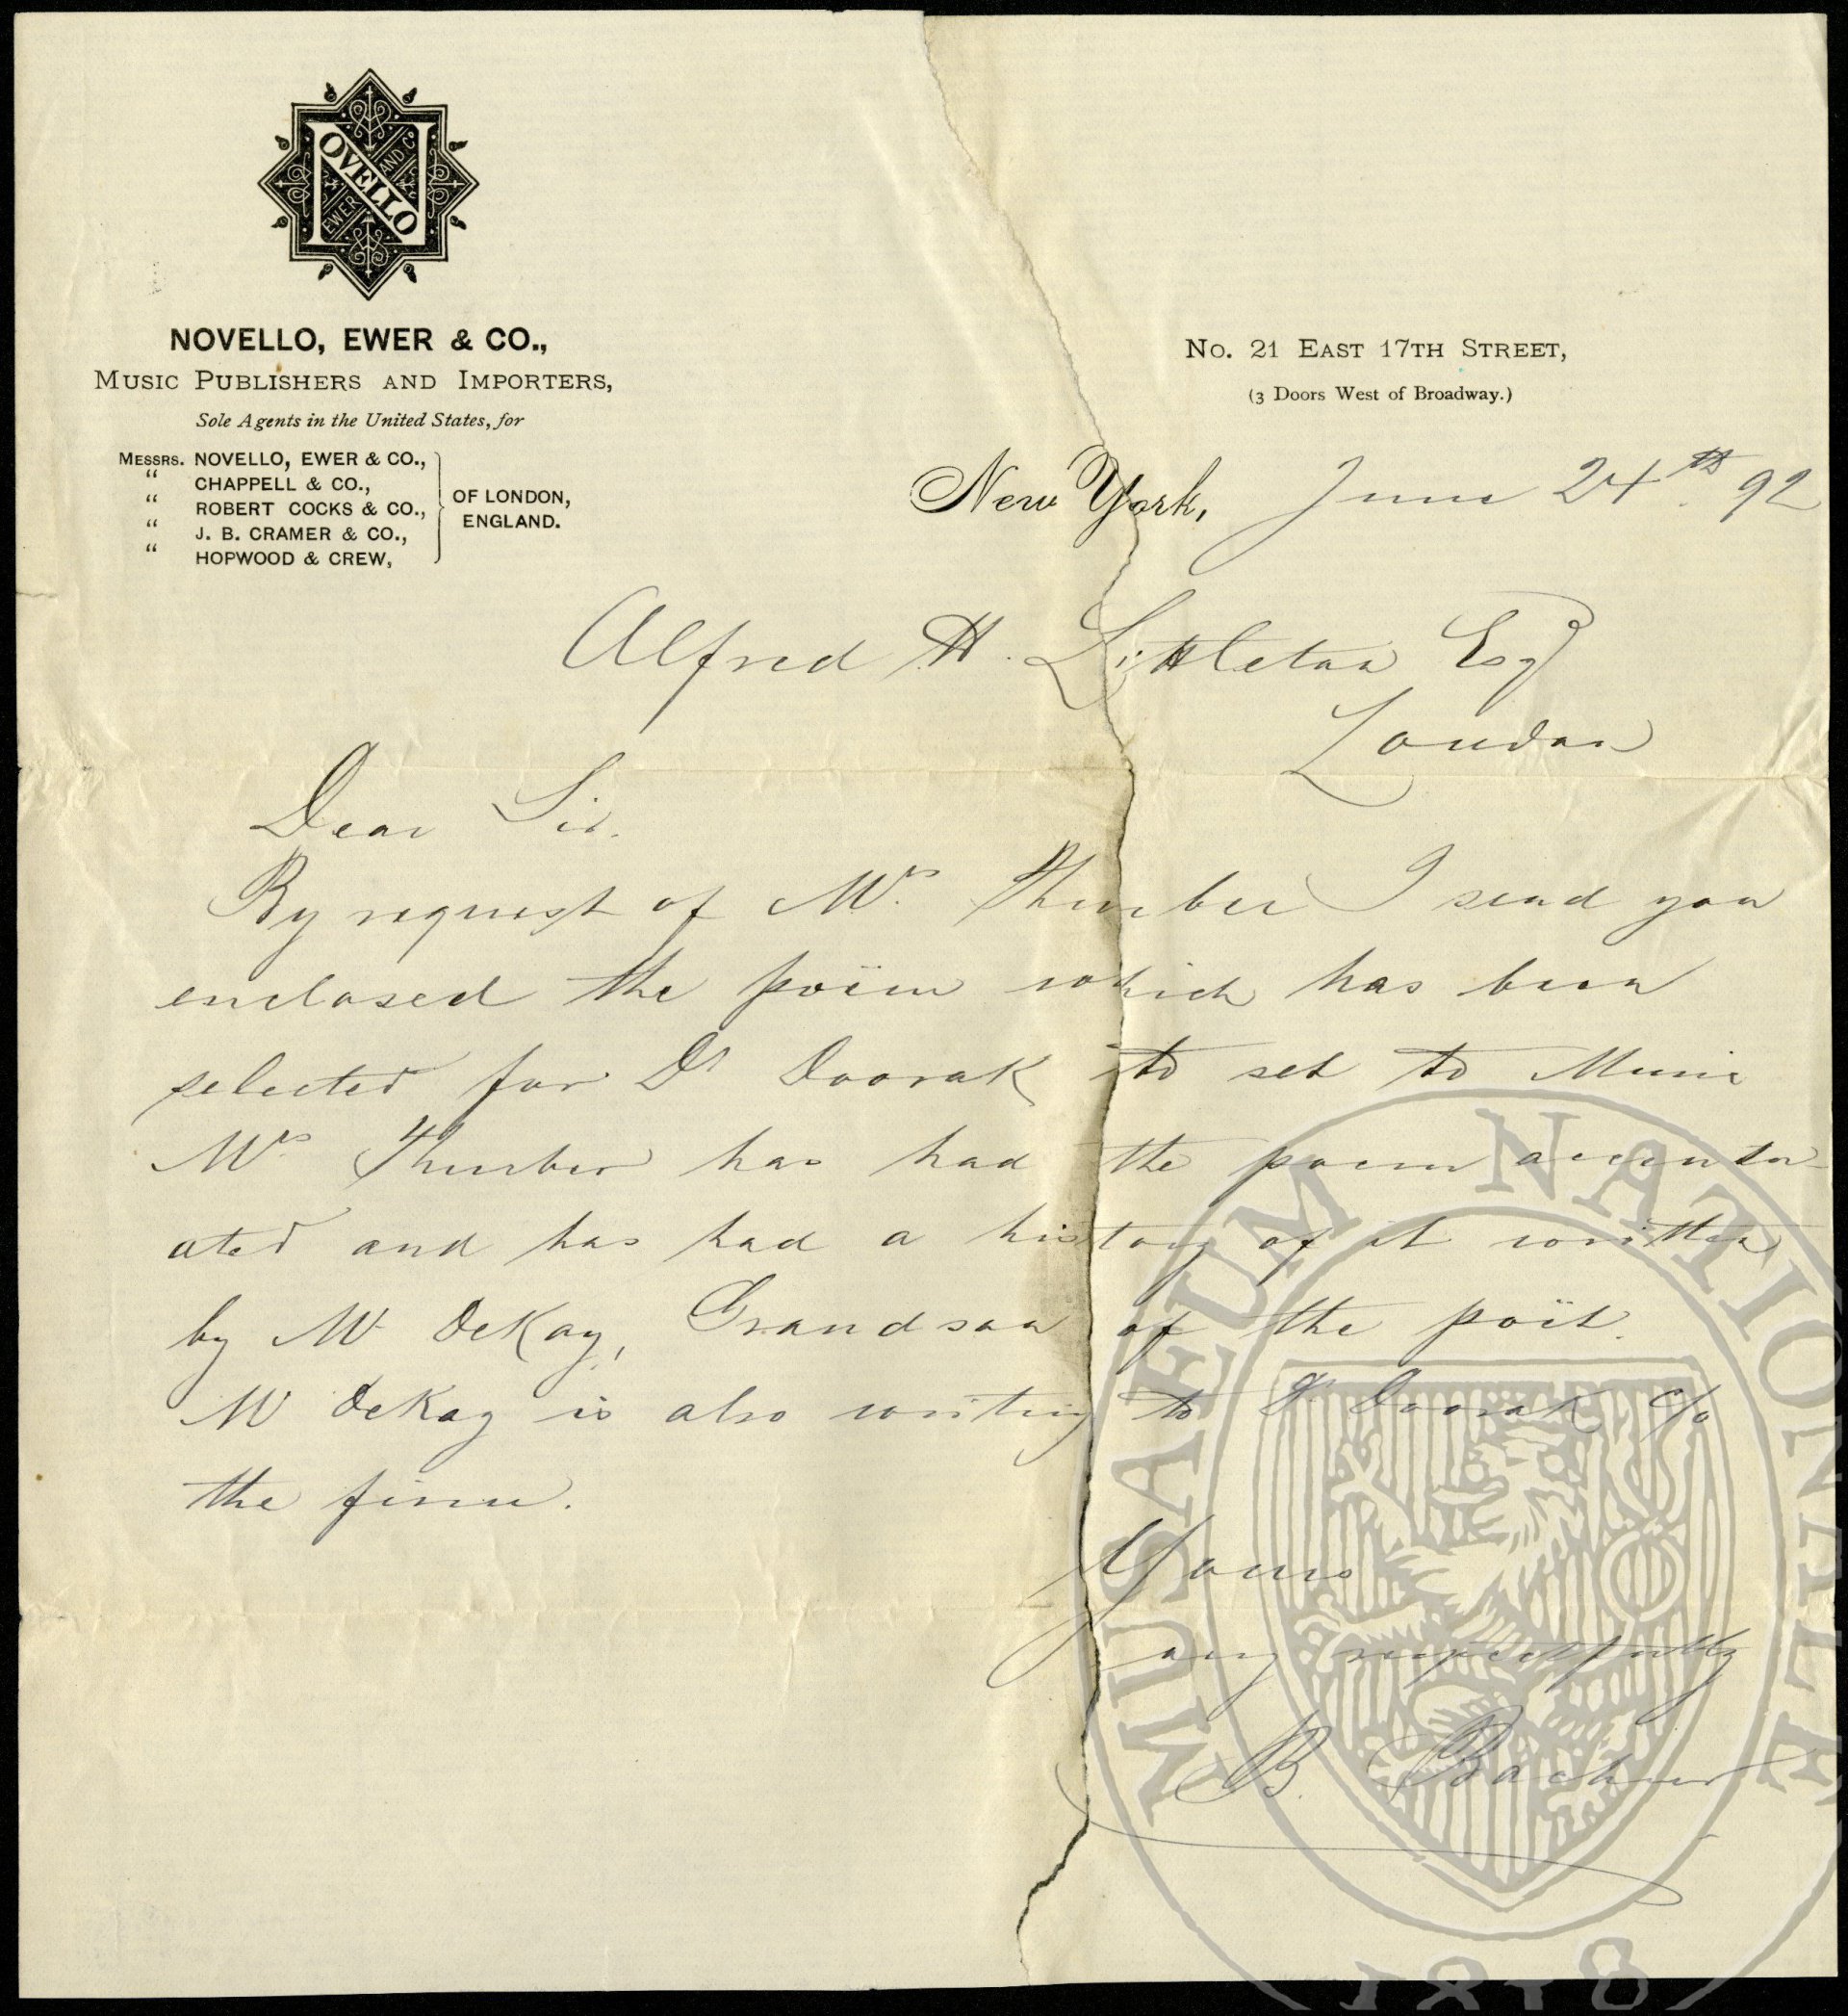 NOVELLO
EWER AND Co
NOVELLO, EWER & CO.,
MUSIC PUBLISHERS AND IMPORTERS,
Sole Agents in the United States, for
MESSRS. NOVELLO, EWER & CO.,
" CHAPPELL & CO.,
" ROBERT COCKS & CO.,
" J. B. CRAMER & CO.,
" HOPWOOD & CREW,
OF LONDON,
ENGLAND.
No. 21 EAST 17TH STREET,
(3 Doors West of Broadway.)
New York, June 24th 92
Alfred H. Littleton Esq
London
Dear Sir.
By request of Mrs. Thurber I send you
enclosed the poëm which has been
selected for Dr Dvorak to set to Music
Mrs Thurber has had the poem accentu-
ated and has had a history of it written
by Mr DeKay, Grandson of the poët.
Mr DeKay is also writing to Dr. Dvorak c/o
the firm.
Yours
very respectfully
B.
MUSAEUM NATIONALE
1818